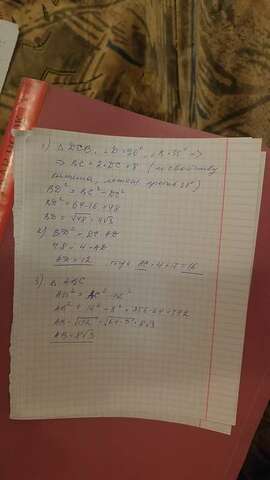 1) △ DCB, ∠D=90°, ∠B=30° =>
=> BC = 2·DC = 8 (по свойству
катета, против 30°)
BD² = BC² - DC²
BD² = 64-16 = 48
BD = √48 = 4√3
2) BD² = DC·AD
48 = 4·AD
AD = 12 тогда AC = 4+12 = 16
3) △ ABC
AB² = AC² - BC²
AB² = 16² - 8² = 256-64 = 192
AB = √192 = √64·3 = 8√3
AB = 8√3